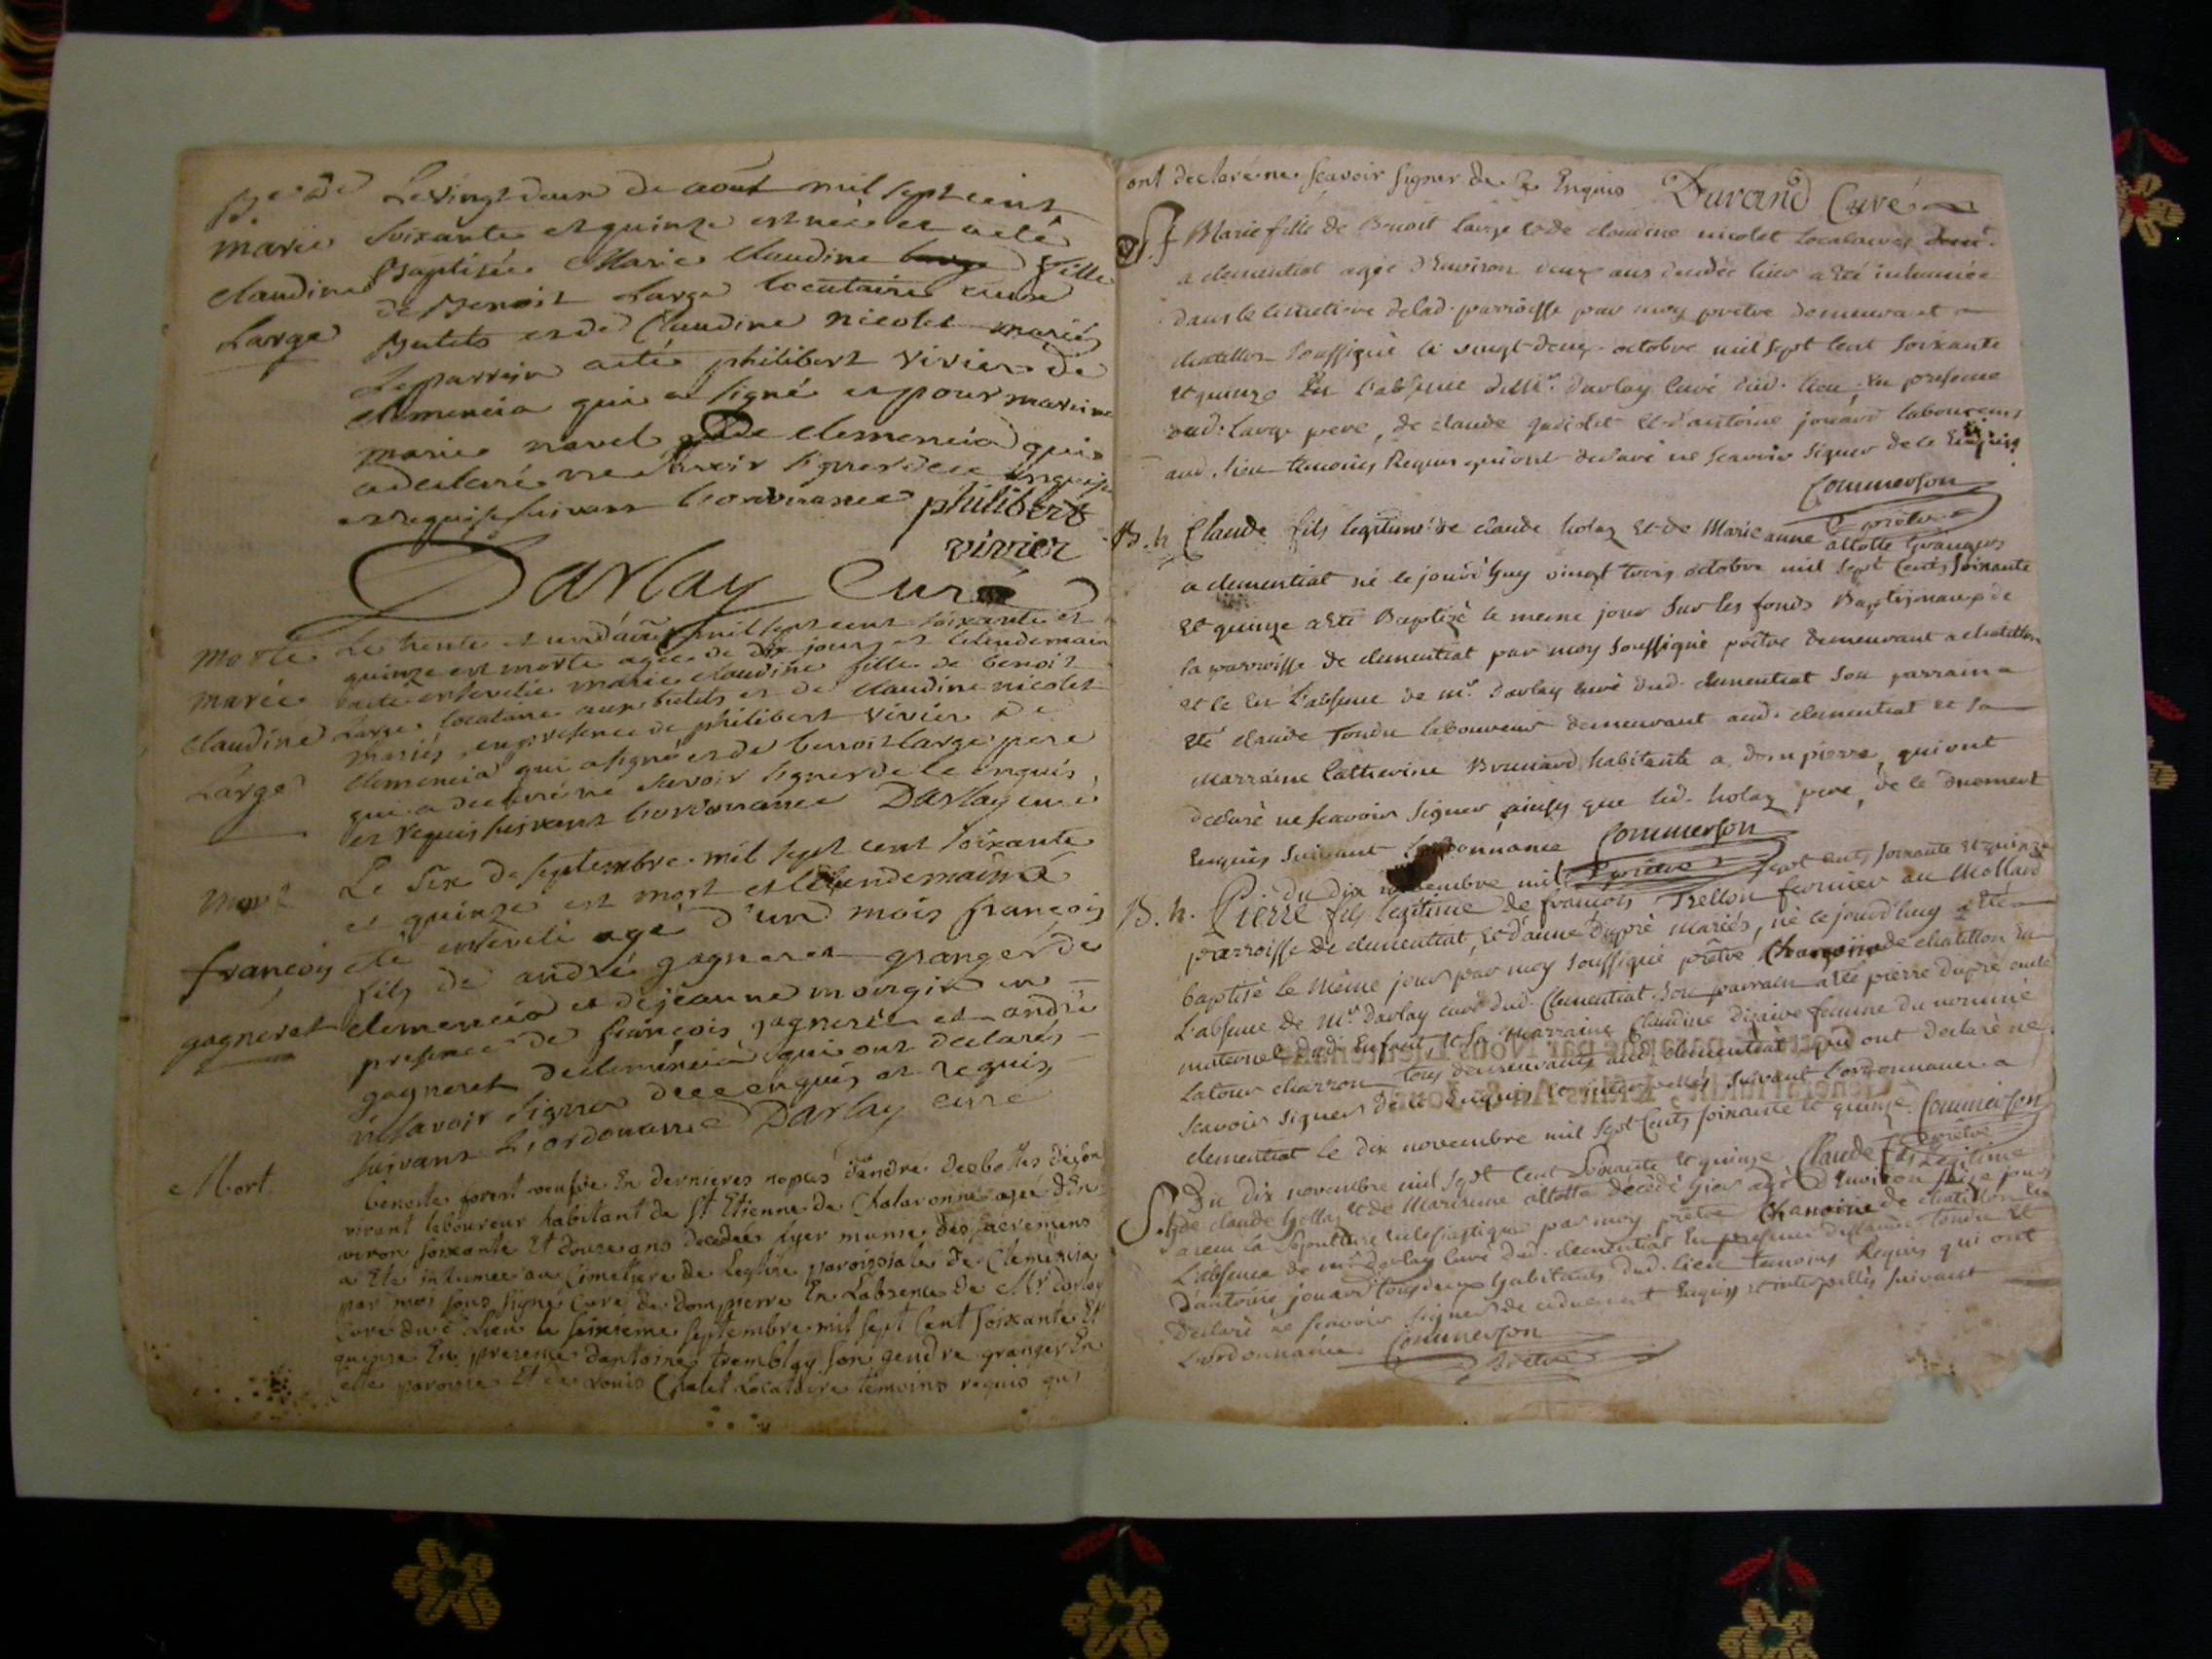 Le vingt deux de août mil sept cent
marie soixante et quinze est née et a eté
claudine Baptisée Marie Claudine large fille
Large de Benoit Large locataire
et de Claudine nicolet mariés
Le parrein a eté philibert vivier de
clemencia qui a signé et pour mareine
marie navel de clemencia qui
a declaré ne savoir signer de ce enquise
et requise suivant l'ordonnance philibert
vivier
Darlay Curé
morte Le trente et un d'août mil sept cent soixante et
quinze est morte agée de dix jours et lelendemain
marie a eté ensevelie marie claudine fille de benoit
claudine Large locataire aux butets et de claudine nicolet
mariés en presence de philibert vivier de
Large clemencia qui a signé et de benoit large pere
qui a declaré ne savoir signer de ce enquis
et requis suivant l'ordonnance Darlay curé
mort Le Six de septembre mil sept cent soixante
et quinze est mort et lelendemain a
françois eté enseveli agé d'un mois françois
fils de andré gagneret granger de
gagneret clemencia et de jeanne mongin en
presence de françois gagneret et andré
gagneret de clemencia qui ont declarés
ne savoir signer de ce enquis et requis
suivant l'ordonance Darlay curé
Mort benoite forest veufve En dernieres nopces d'andré desbottes
vivant laboureur habitant de St Etienne de Chalaronne agée d'En
viron soixante Et douze ans decedée hyer munie des sacremens
a Ete inhumée au Cimetiere de Leglise paroissiale de Clemencia
par moi sous signé Curé de Dompierre En Labsence de Mr darlay
Curé dud. Lieu le seizieme septembre mil sept Cent soixante Et
quinze En presence d'antoine tremblay son gendre granger En
cette paroisse Et de Louis Chalet Locataire temoins requis qui
ont declaré ne scavoir signer de ce Enquis Durand Curé
S. f. Marie fille de Benoit large et de claudine nicolet locataires demt.
a clementiat agée d'Environ deux ans decedée hier a eté inhumée
dans le cimetiere de lad. parroisse par moy prêtre demeurant a
chatillon soussigné le vingt-deux octobre mil sept cent soixante
et quinze En l'absence de Mr. Darlay curé dud. lieu, En presence
dud. large pere, de claude gadiolet et d'antoine jouard laboureurs
aud. lieu temoins Requis qui ont declaré ne scavoir signer de ce Enquis
Commerson
prêtre
B. h. Claude fils legitime de claude holaz et de Marie anne allotte grangers
a clementiat né le jourd'huy vingt trois octobre mil sept Cents soixante
et quinze a eté Baptisé le meme jour sur les fonds Baptismaux de
la parroisse de clementiat par moy soussigné prêtre demeurant a chatillon
et ce En l'absence de mr. Darlay curé dud. clementiat son parrain a
eté claude Tondu laboureur demeurant aud. clementiat et sa
marraine Catherine Brunard habitante a dompierre, qui ont
declaré ne scavoir signer ainsy que led. holaz pere, de ce duement
Enquis suivant l'ordonnance Commerson
prêtre
du dix novembre mil sept cent soixante et quinze
B. h. Pierre fils legitime de françois Trellon fermier au Mollard
parroisse de clementiat, et d'anne Dupré mariés, né ce jourd'huy a eté
baptisé le même jour par moy soussigné prêtre Chanoine de chatillon En
L'absence de Mr. Darlay curé dud. Clementiat. Son parrain a eté pierre Dupré oncle
maternel dud. Enfant, et sa marraine Claudine Dizaive femme du nommé
Latour charron tous demeurants aud. clementiat qui ont declaré ne
scavoir signer de ce Enquis et interpellés suivant l'ordonnance a
clementiat le dix novembre mil sept Cents soixante et quinze. Commerson
prêtre
Du dix novembre mil sept cent soixante et quinze Claude fils legitime
S. h. de claude hollaz et de Marianne allotte decedé hier agé d'Environ seize jours
a recu la sepulture ecclesiastique par moy prêtre Chanoine de chatillon En
L'absence de mr Darlay curé dud. clementiat En presence de claude Tondu et
d'antoine jouard tous deux habitants dud. lieu temoins Requis qui ont
Declaré ne scavoir signer de ce duement Enquis et interpellés suivant
L'ordonnance Commerson
prêtre